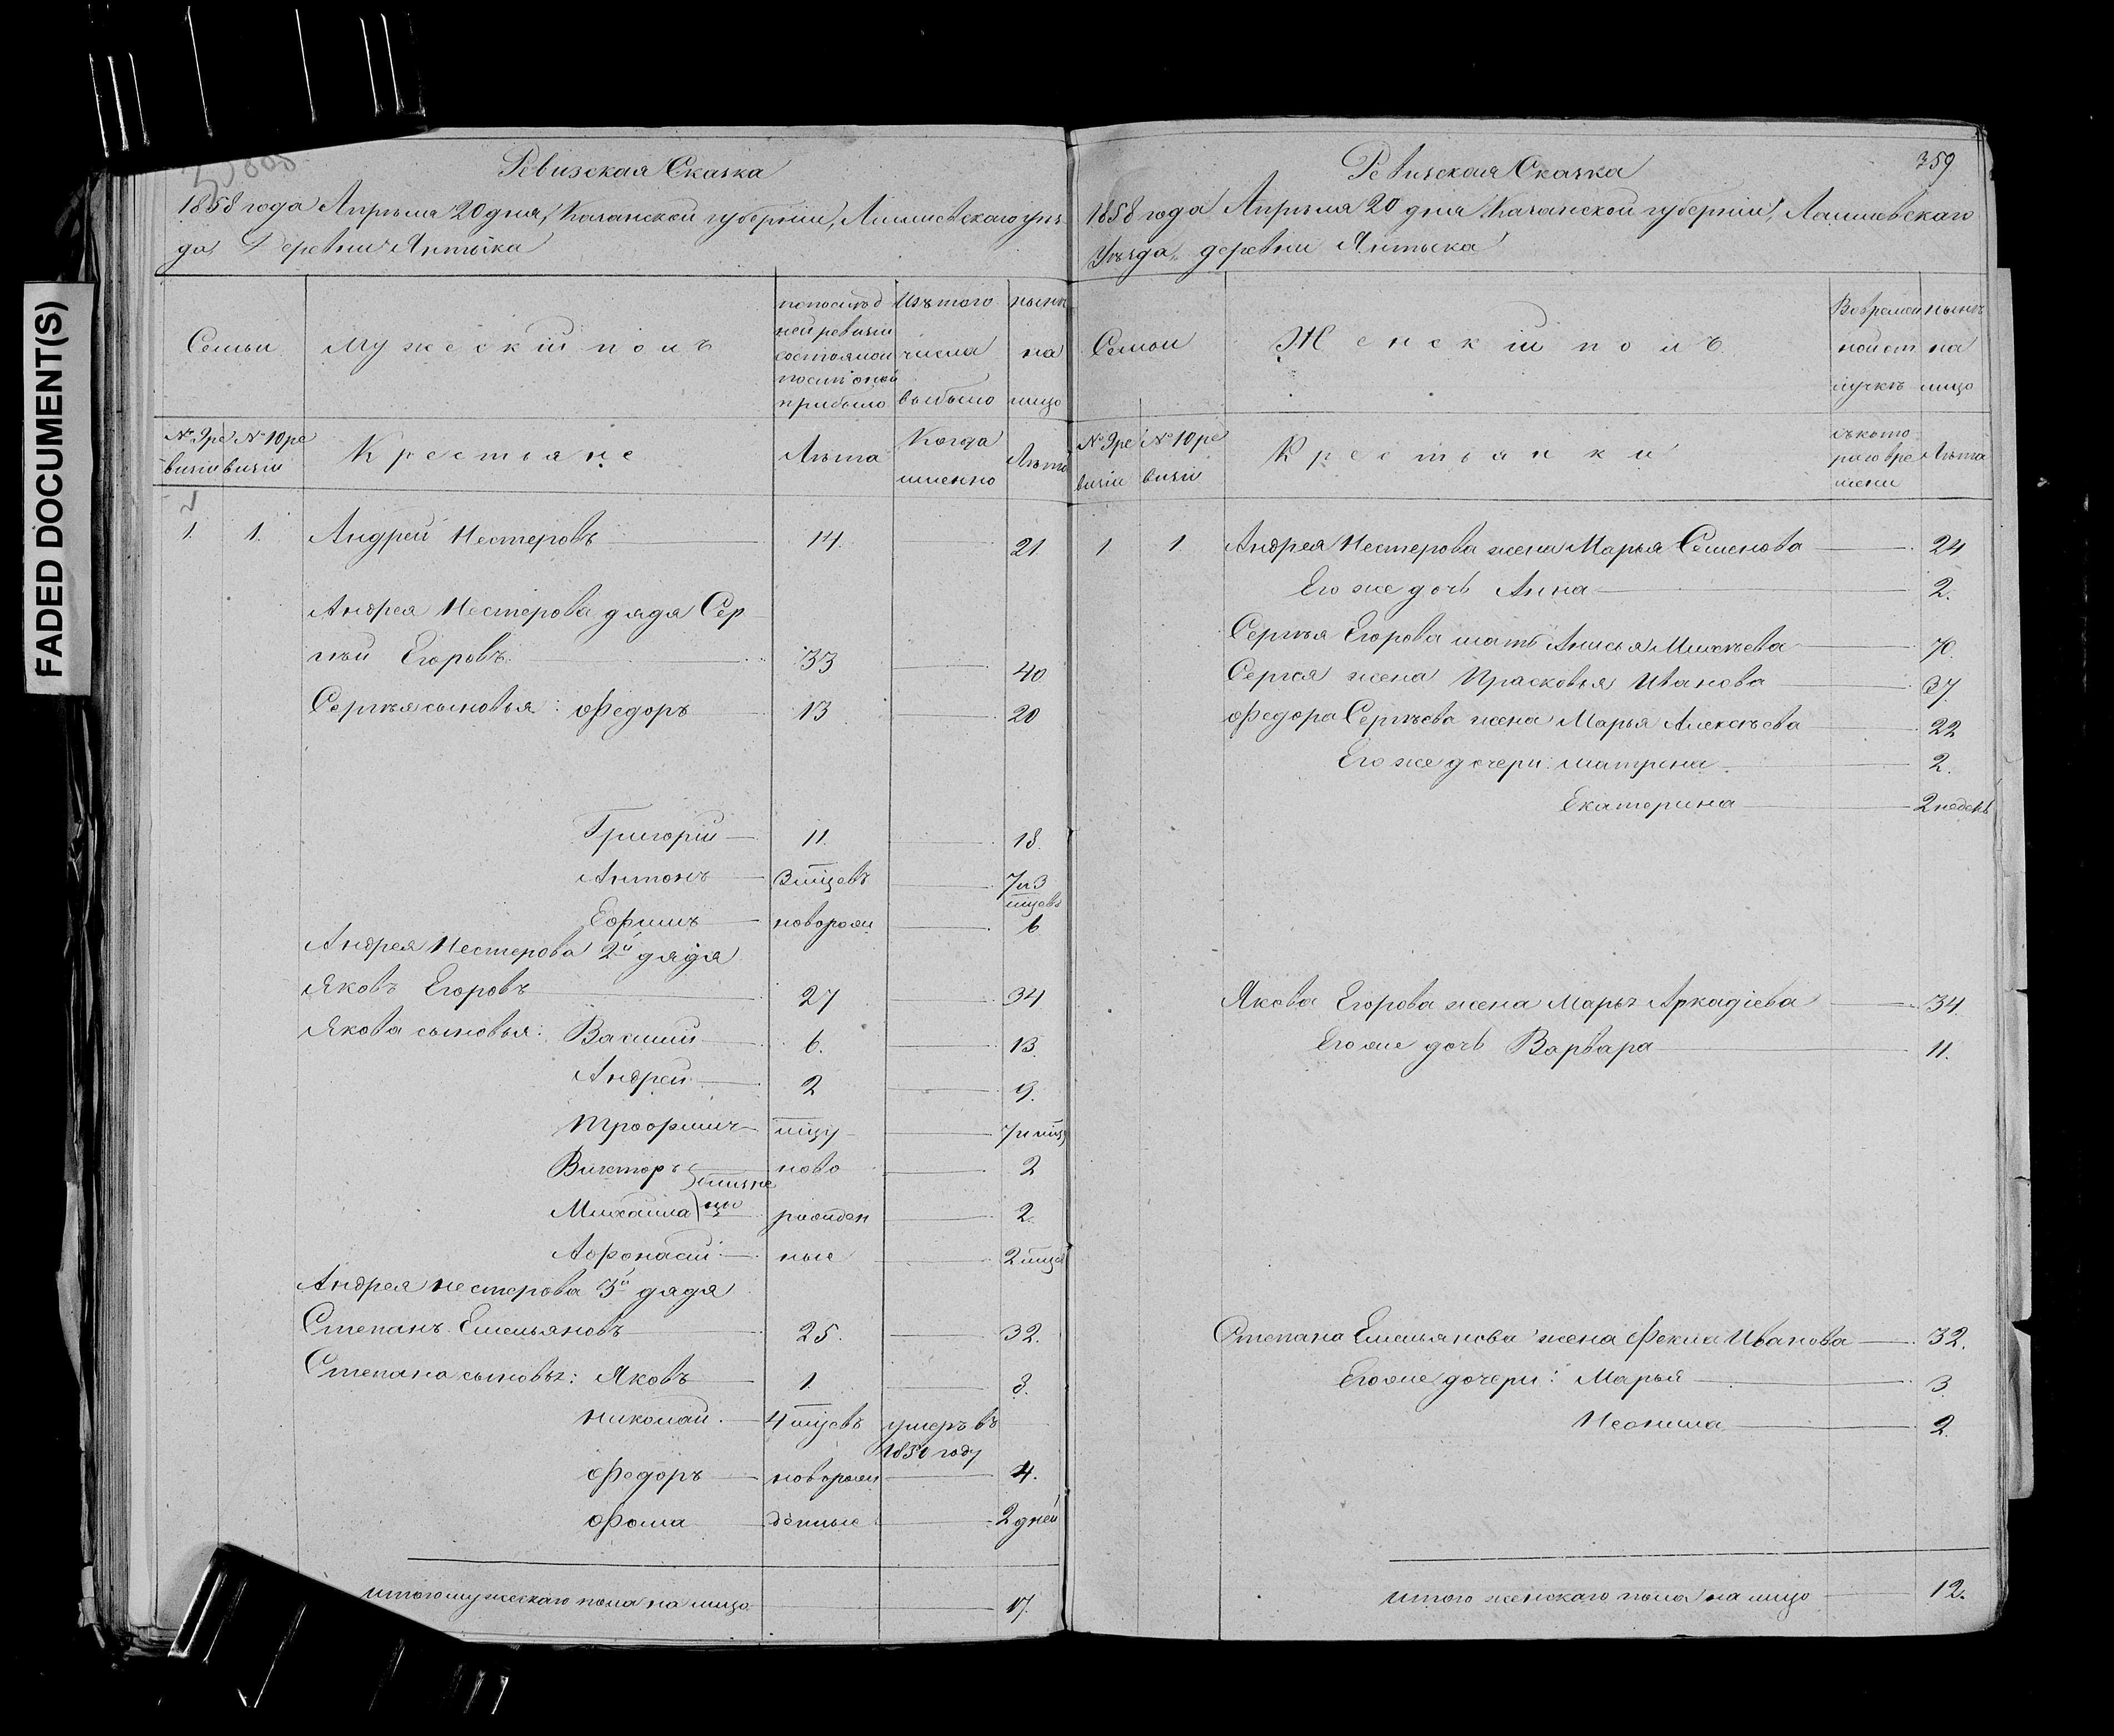 FADED DOCUMENT(S)
Ревизская Сказка
1858 года Апрѣля 20 дня, Казанской губерніи, Лаишевскаго уѣз
да, Деревни Янтыка
Семьи
Мужескій полъ
по послѣд
ней ревизіи
состояло и
послѣ оной
прибыло
Изъ того
числа
выбыло
нынѣ
на
лицо
№ 9 ре
визіи
№ 10 ре
визіи
Крестьяне
Лѣта
Когда
именно
Лѣта
1. 1. Андрей Нестеровъ 14. 21
Андрея Нестерова дядя Сер
гѣй Егоровъ 33 40
Сергѣя сыновья: Федоръ 13 20
Григорій 11. 18.
Антонъ 3 мѣцевъ 7 и 3
мцевъ
Ефимъ새 новорож 6
Андрея Нестерова 2й дядя
Яковъ Егоровъ 27 34
Якова сыновья: Василий 6. 13.
Андрей 2 9.
Трофимъ мцу 7 и мцъ
Викторъ близне ново 2
Михаила цы рожден 2.
Афонасій ные 2 мца
Андрея Нестерова 3й дядя
Степанъ Емельяновъ 25. 32.
Степана сыновья: Яковъ 1. 8.
Николай 4 мцевъ умеръ въ
1850 году
Федоръ новорож 4.
Фома денные 2 дней
Итого мужескаго пола на лицо 17.
359
Ревизская Сказка
1858 года Апрѣля 20 дня Казанской губерніи, Лаишевскаго
Уѣзда, деревни Янтыка
Семьи
Женскій полъ
Во времен
ной от
лучкѣ
нынѣ
на
лицо
№ 9 ре
визіи
№ 10 ре
визіи
Крестьянки
съ кото
раго вре
мени
Лѣта
1 1 Андрея Нестерова жена Марья Семенова 24
Его же дочь Анна 2.
Сергѣя Егорова мать Анисья Михеева 70.
Сергея жена Прасковья Иванова 37.
Федора Сергѣева жена Марья Алексѣева 22
Его же дочери: Матрена 2.
Екатерина 2 недель
Якова Егорова жена Марья Аркадіева 34.
Его же дочь Варвара 11.
Степана Емельянова жена Фекла Иванова 32.
Его же дочери: Марья 3.
Неонила 2.
Итого женскаго пола на лицо 12.